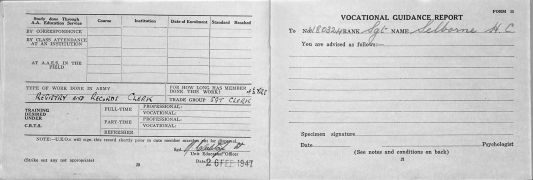 Study done Through
A.A. Education Service
Course
Institution
Date of Enrolment
Standard Reached
BY CORRESPONDENCE
BY CLASS ATTENDANCE
AT AN INSTITUTION
AT A.A.E.S. IN THE
FIELD
TYPE OF WORK DONE IN ARMY
FOR HOW LONG HAS MEMBER
DONE THIS WORK?
REGISTRY AND RECORDS CLERK
TRADE GROUP SGT CLERK
TRAINING
DESIRED
UNDER
C.R.T.S.
FULL-TIME
PROFESSIONAL:
VOCATIONAL:
PART-TIME
PROFESSIONAL:
VOCATIONAL:
REFRESHER
NOTE:—U.E.O.s will sign this record shortly prior to date member marches out for disposal.
Sgd.
Unit Education Officer
(Strike out any not appropriate)
Date 26 FEB 1947
20
FORM 11
VOCATIONAL GUIDANCE REPORT
To No. RANK Sgt NAME Selborne H. C
You are advised as follows:—
Specimen signature
Date Psychologist
(See notes and conditions on back)
21